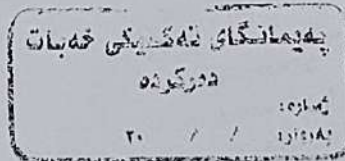 پەیمانگای تەکنیکی خەبات
دەرکردە
ژمارە:
بەروار: / / ٢٠